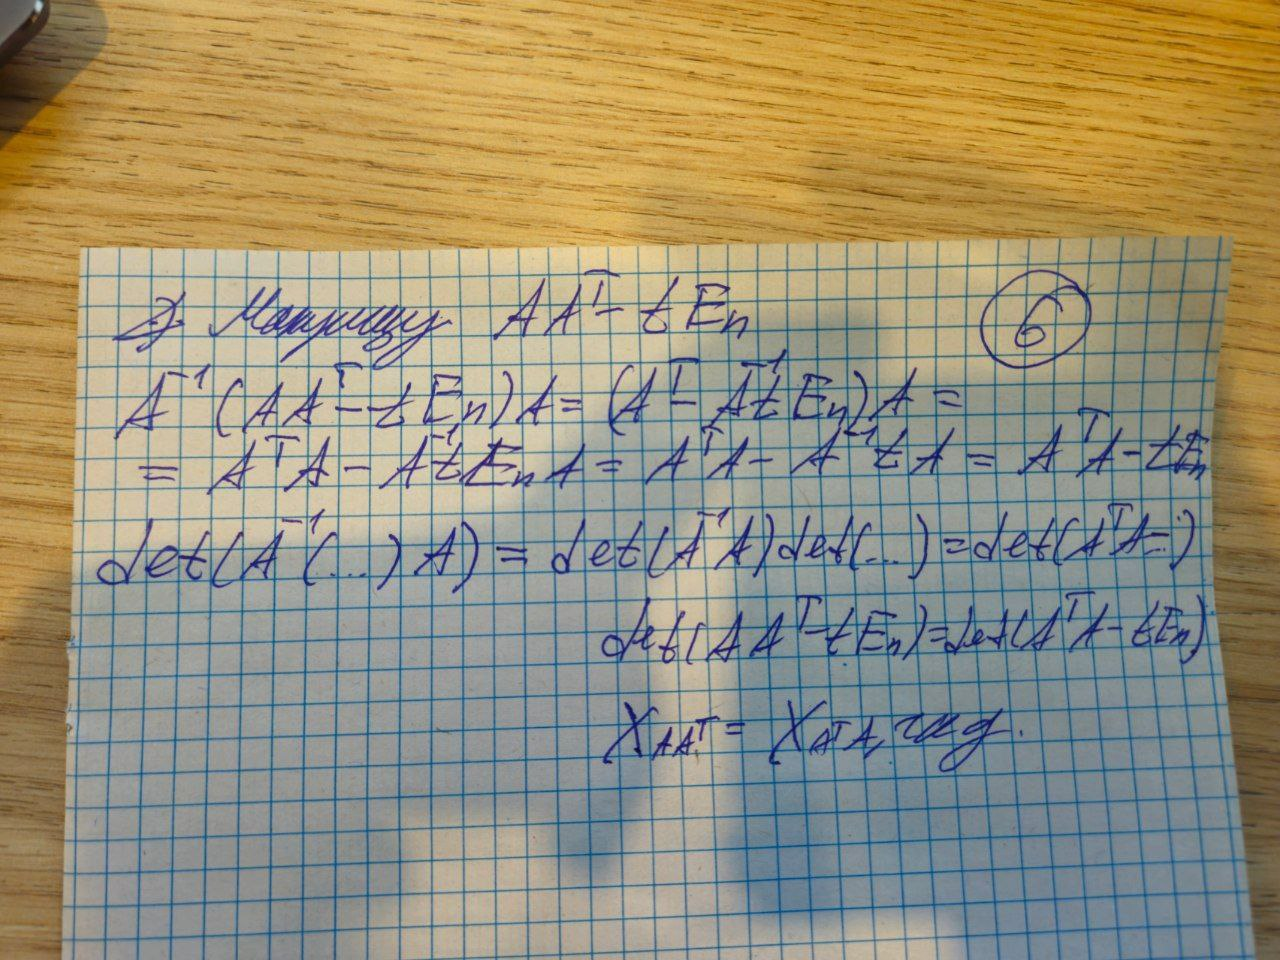 2) Матрицу AAᵀ - tEₙ
6
A⁻¹(AAᵀ - tEₙ)A = (Aᵀ - A⁻¹tEₙ)A =
= AᵀA - A⁻¹tEₙA = AᵀA - A⁻¹tA = AᵀA - tEₙ
det(A⁻¹(...)A) = det(A⁻¹A)det(...) = det(AᵀA-..)
det(AAᵀ - tEₙ) = det(AᵀA - tEₙ)
χ_AAᵀ = χ_AᵀA, чтд.